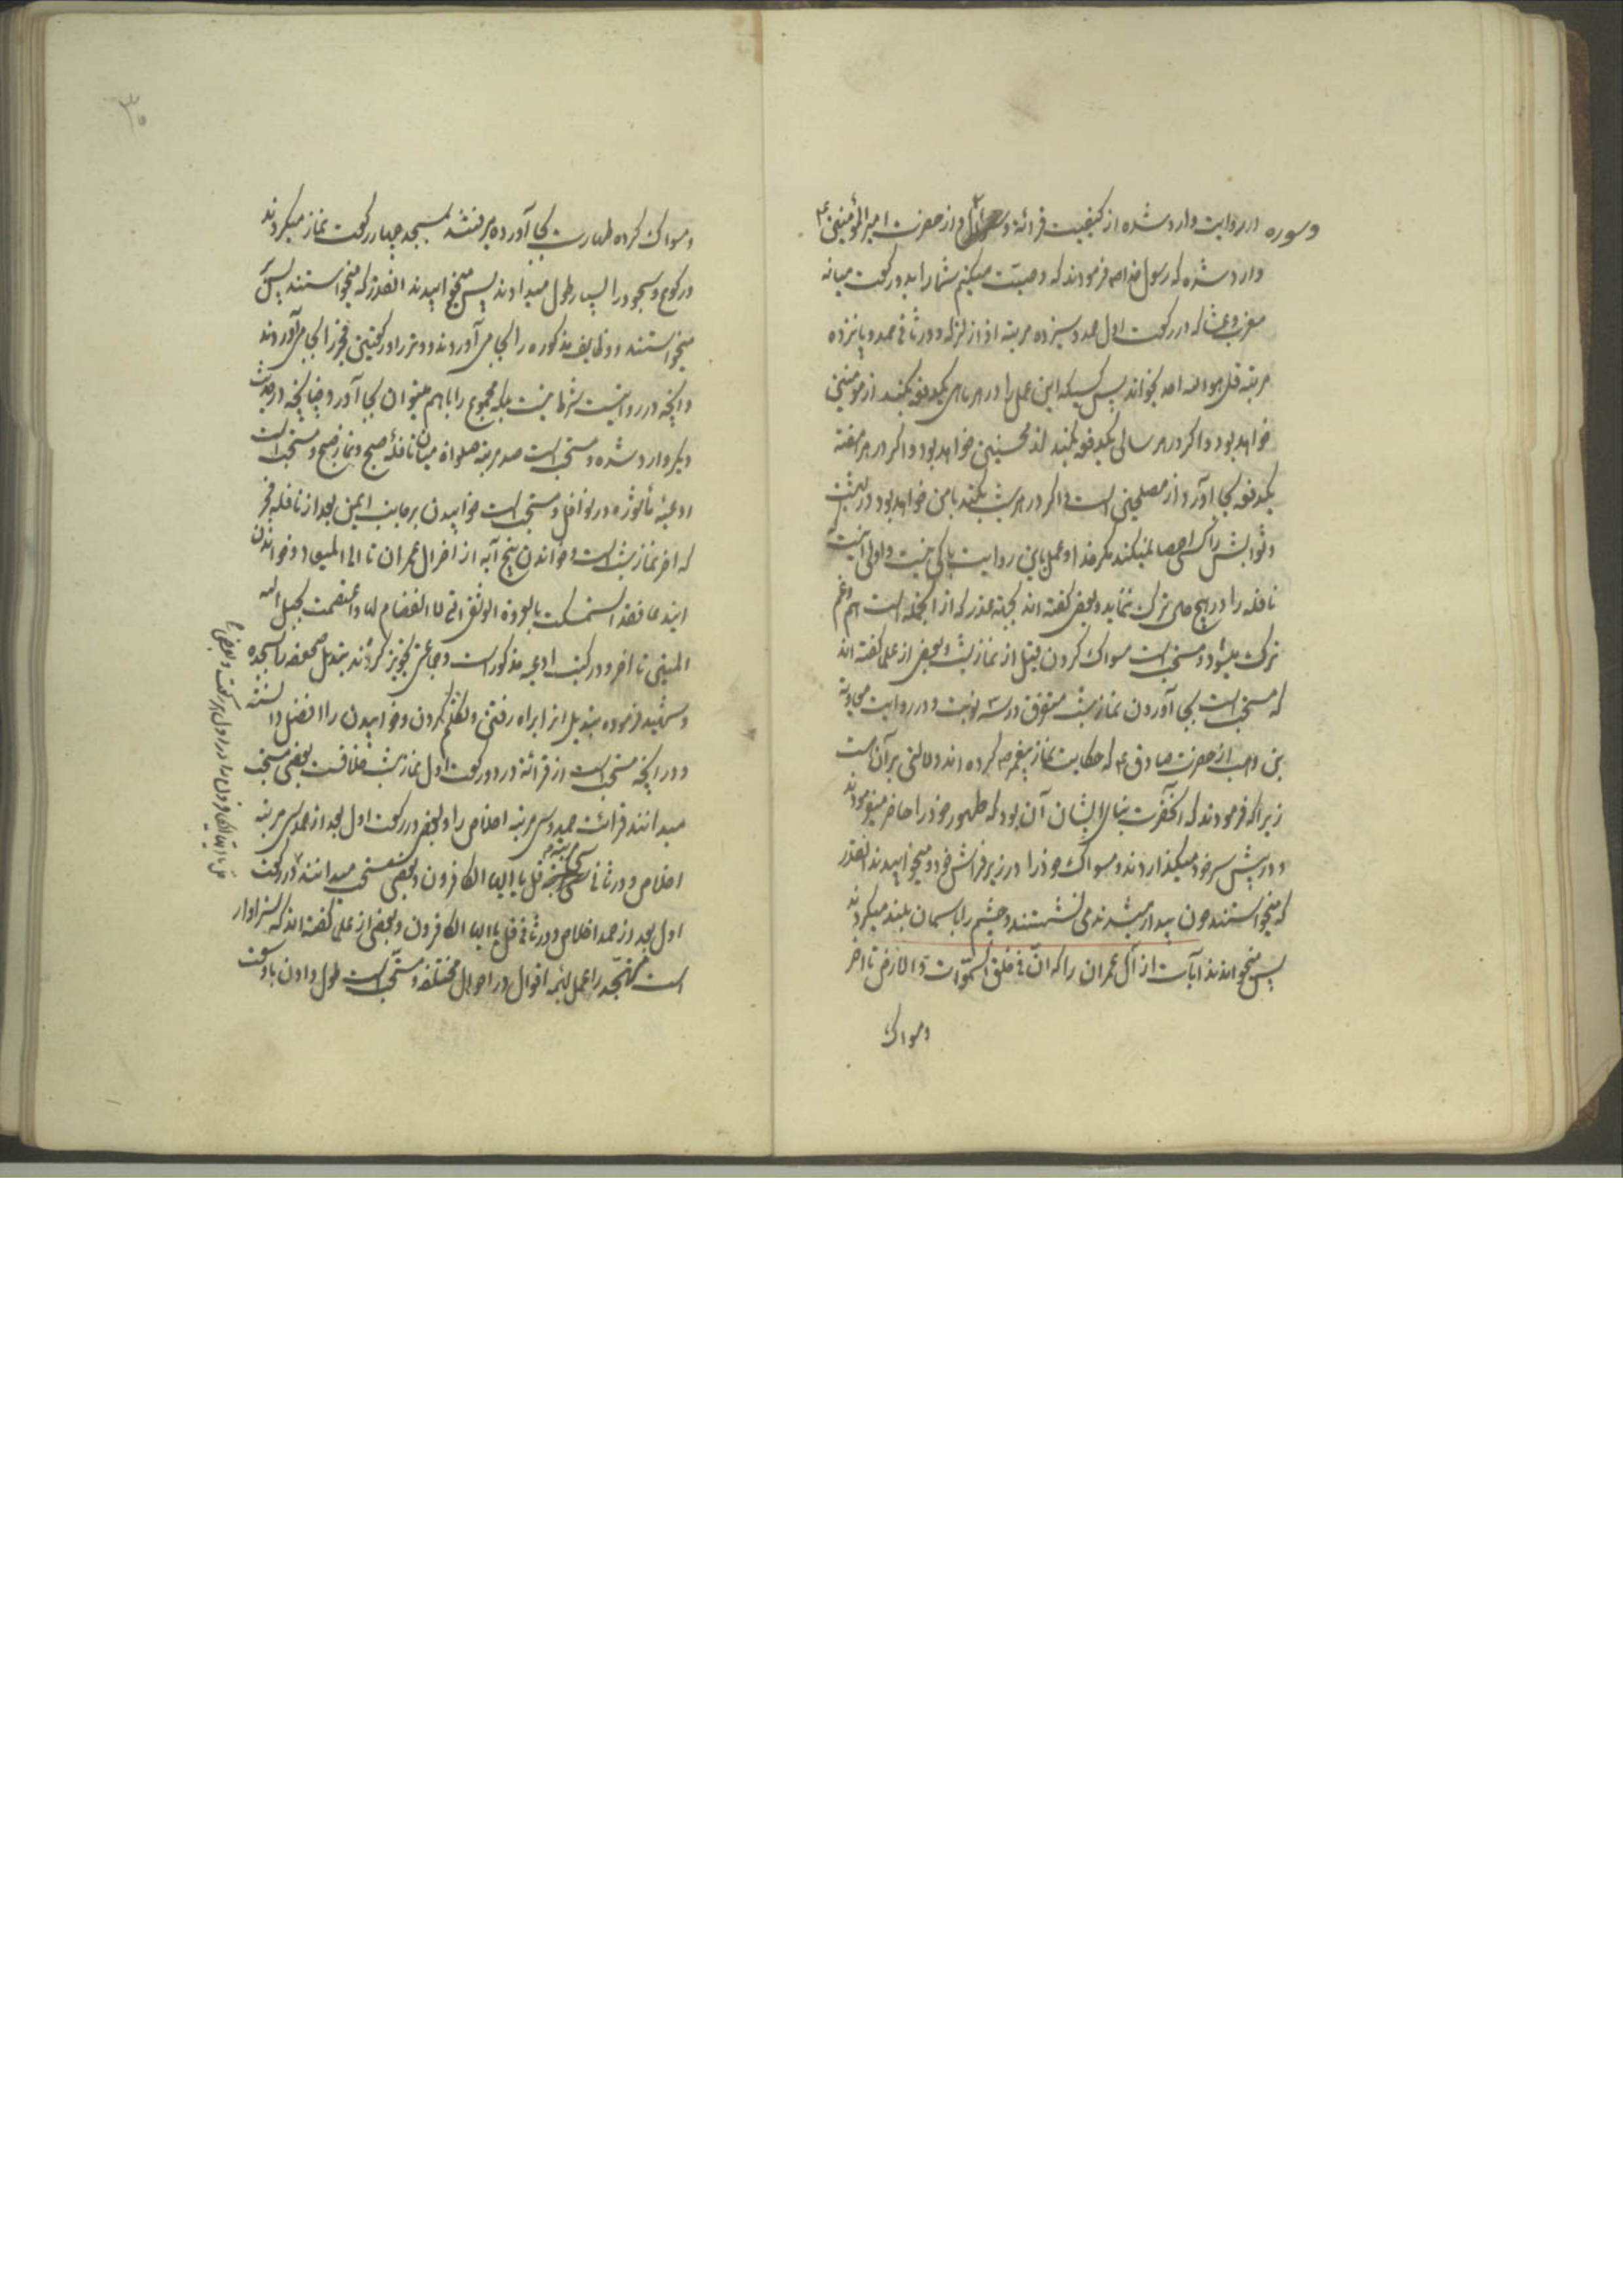 وسوره در روایت وارد شده از کیفیت قرائة و از حضرت امیر المؤمنین ع
وارد شده که رسول خدا صم فرمودند که وصیّت میکنم شما را بدو رکعت میانه
مغرب و عشا که در رکعت اول حمد و سیزده مرتبه اذا زلزله و در ثانی حمد و پانزده
مرتبه قل هو الله احد بخواند پس کسیکه این عمل را در هر ماهی یکدفعه بکند از مومنین
خواهد بود و اگر در هر سالی یکدفعه بکند از محسنین خواهد بود و اگر در هر هفته
یکدفعه بجا آورد از مصلحین است و اگر در هر شب بکند با من خواهد بود در بهشت
و ثوابش را کسی احصا نمیکند مگر خدا و عمل باین روایت باکی نیست و اولی آنست
نافله را در هیچ حالی ترک ننماید و بعضی گفته اند بجهة عذر که از آنجمله است هم و غم
ترک میشود و مستحب است مسواک کردن قبل از نماز شب و بعضی از علما گفته اند
که مستحب است بجا آوردن نماز شب متفرق در سه نوبت و در روایت معاویة
بن وهب از حضرت صادق ع که حکایت نماز پیغمبر صم کرده اند دلالتی بر آن هست
زیرا که فرمودند که آنحضرت بنای ایشان آن بود که طهور خود را حاضر میفرمودند
و در پیش سر خود میگذاردند و مسواک خود را در زیر فراش خود و میخوابیدند آنقدر
که میخواستند چون بیدار میشدند می نشستند و چشم را بآسمان بلند میکردند
پس میخواندند آیات از آل عمران را که انّ فی خلق السّموات و الارض تا آخر
و مسواک
۳۰
و مسواک کرده طهارت بجا آورده میرفتند بمسجد چهار رکعت نماز میکردند
و رکوع و سجود را بسیار طول میدادند پس میخوابیدند آنقدر که میخواستند پس
میخواستند و وظایف مذکوره را بجا می آوردند و وتر را و رکعتین فجر را بجا می آوردند
و آنچه در روایتست شرط نیست بلکه مجموع را با هم میتوان بجا آورد چنانچه در حدیث
دیگر وارد شده و مستحب است صد مرتبه صلواة میان نافلهٔ صبح و نماز صبح و مستحب است
ادعیهٔ مأثوره در نوافل و مستحب است خوابیدن بر جانب ایمن بعد از نافله فجر
که آخر نماز شب است و خواندن پنج آیه از آخر آل عمران تا الی المیعاد و خواندن
این دعا فقد استمسکت بالعروة الوثقی التی لا انفصام لها و اعتصمت بحبل الله
المتین تا آخر و در کتب ادعیه مذکور است و جماعتی تجویز کرده اند بتبدیل ضجعه را بسجده
و شهید فرموده بتبدیل از براه رفتن و تکلّم کردن و خوابیدن را افضل دانسته
و در آنچه مستحب است از قرائة در دو رکعت اول نماز شب خلافست بعضی مستحب
میدانند قرائت حمد و سی مرتبه اخلاص را و بعضی در رکعت اول بعد از حمد سی مرتبه
اخلاص و در ثانی سی مرتبه قل یا ایها الکافرون و بعضی مستحب میدانند در رکعت
اول بعد از حمد اخلاص و در ثانی قل یا ایها الکافرون و بعضی از علما گفته اند که سزاوار
است متهجّد را عمل بهمه اقوال در احوال مختلفه و مستحب است طول دادن با وسعت